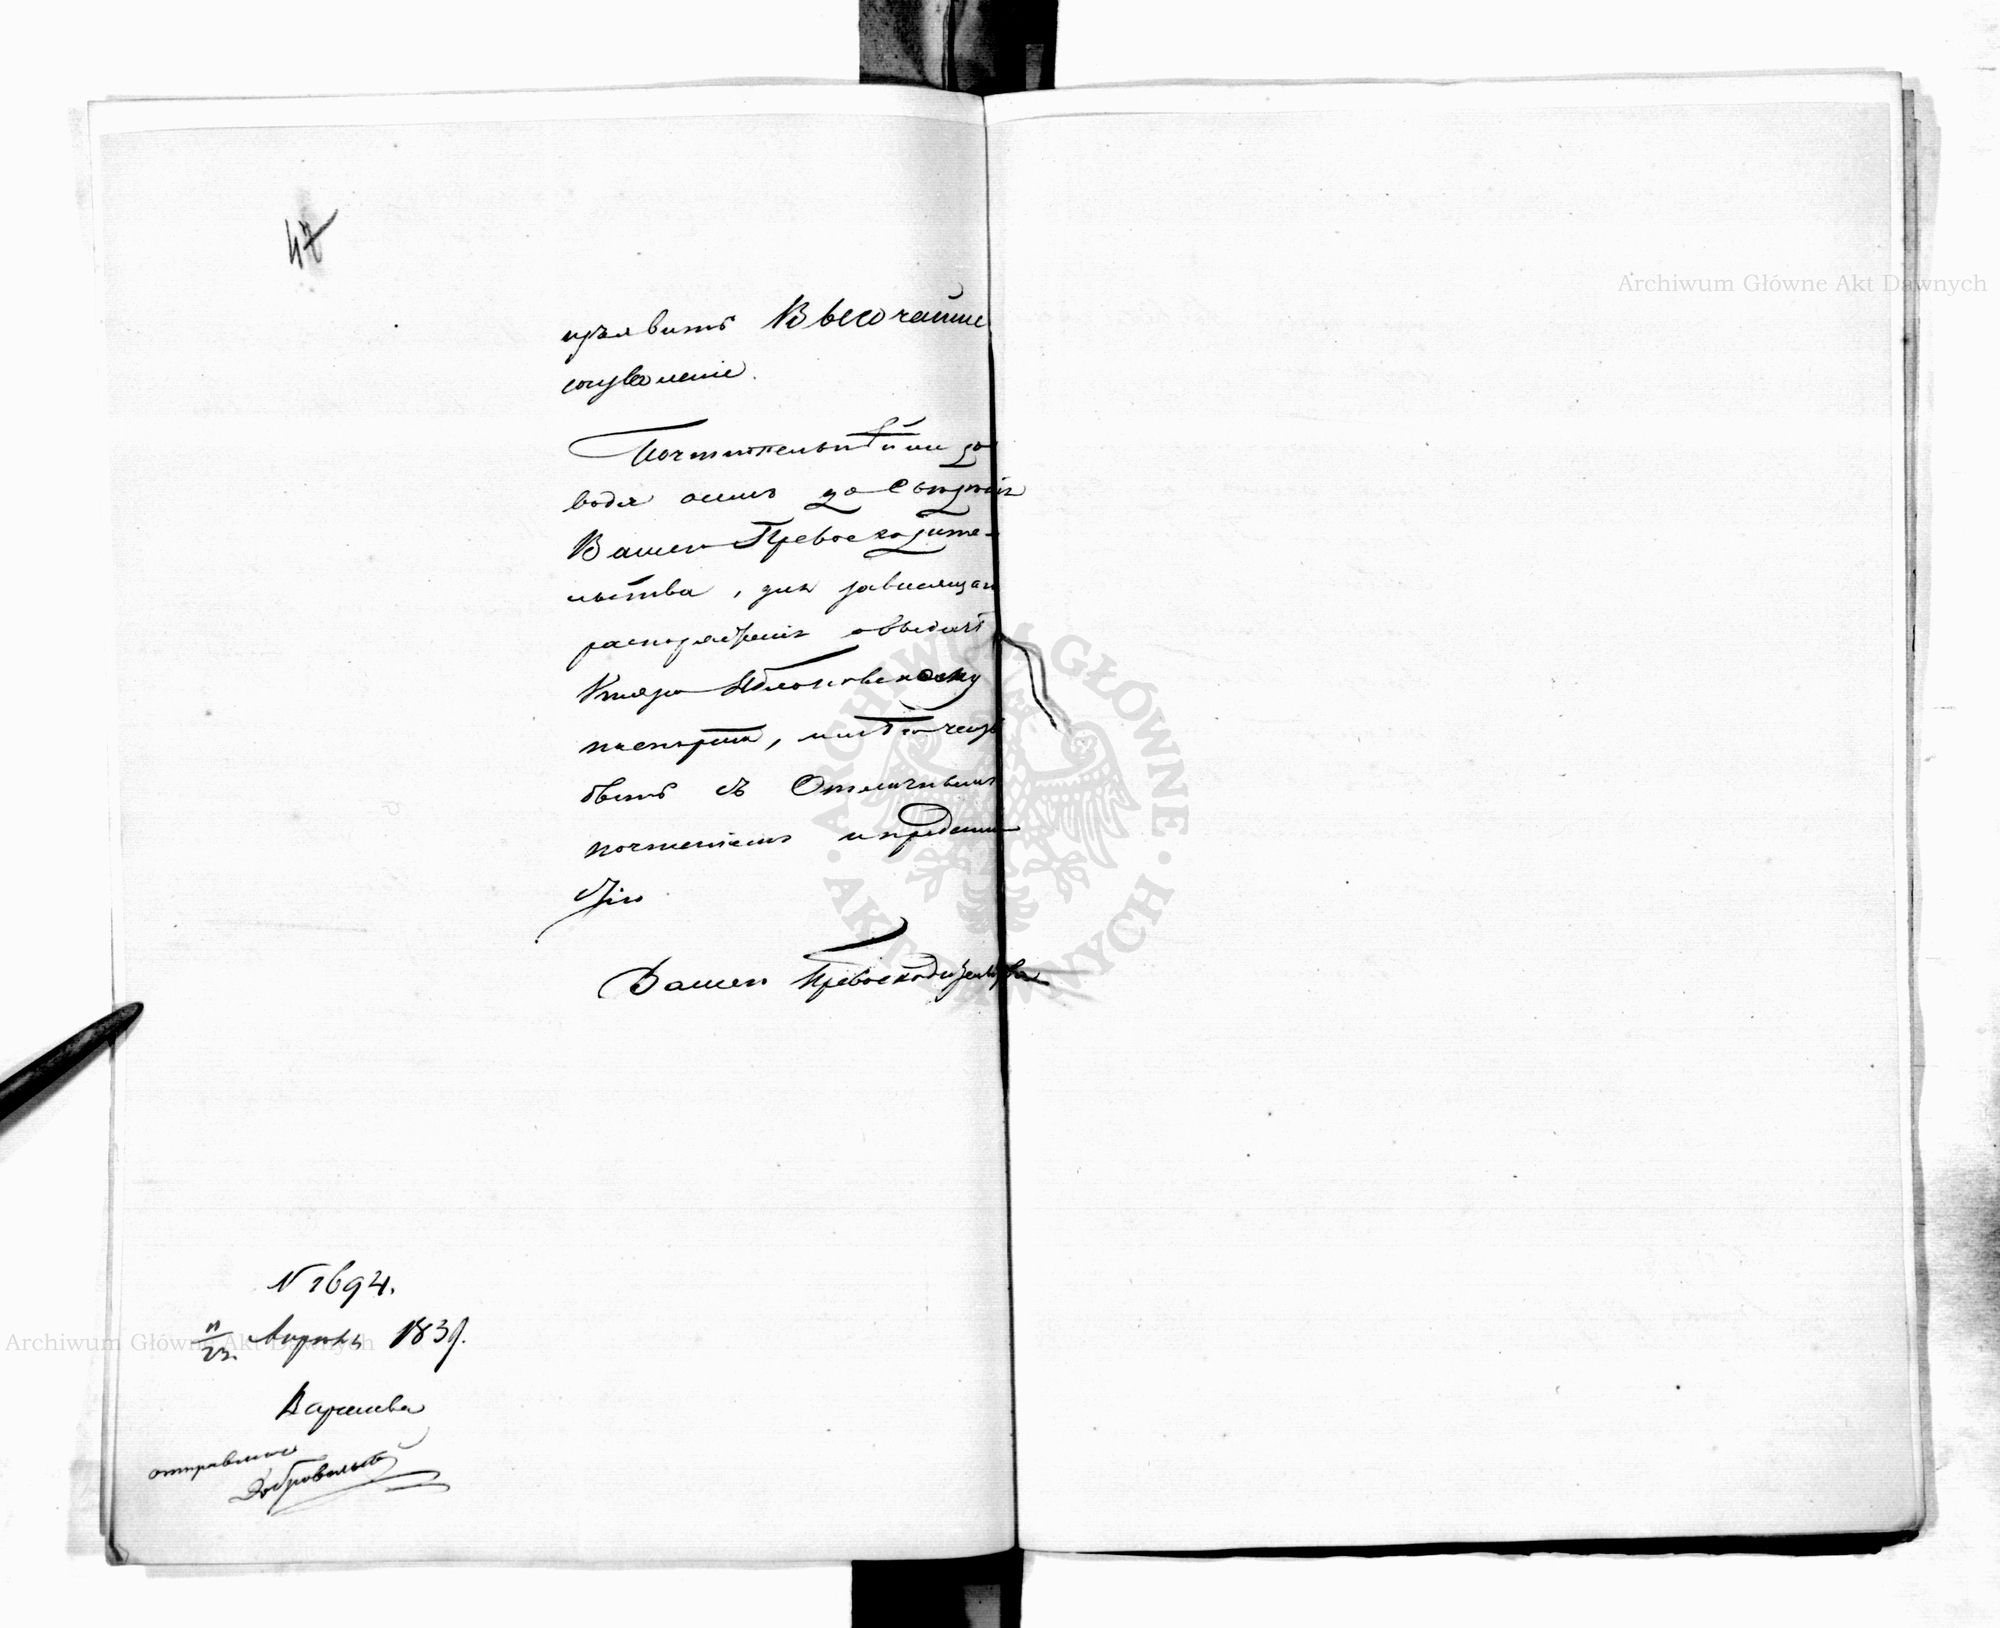 47
изъявить Высочайшее
соизволеніе.
Почтительнѣйше до-
водя о семъ до Свѣдѣнія
Вашего Превосходите-
льства, для зависящаго
распоряженія о выдачѣ
Князю Яблоновскому
паспорта, имѣю честь
быть съ Отличнымъ
почтеніемъ и преданно-
стію
Вашего Превосходительства
N 1694.
11/23 Апрѣля 1839.
Варшава
отправлено
Archiwum Główne Akt Dawnych
Archiwum Główne Akt Dawnych
ARCHIWUM GŁÓWNE AKT DAWNYCH